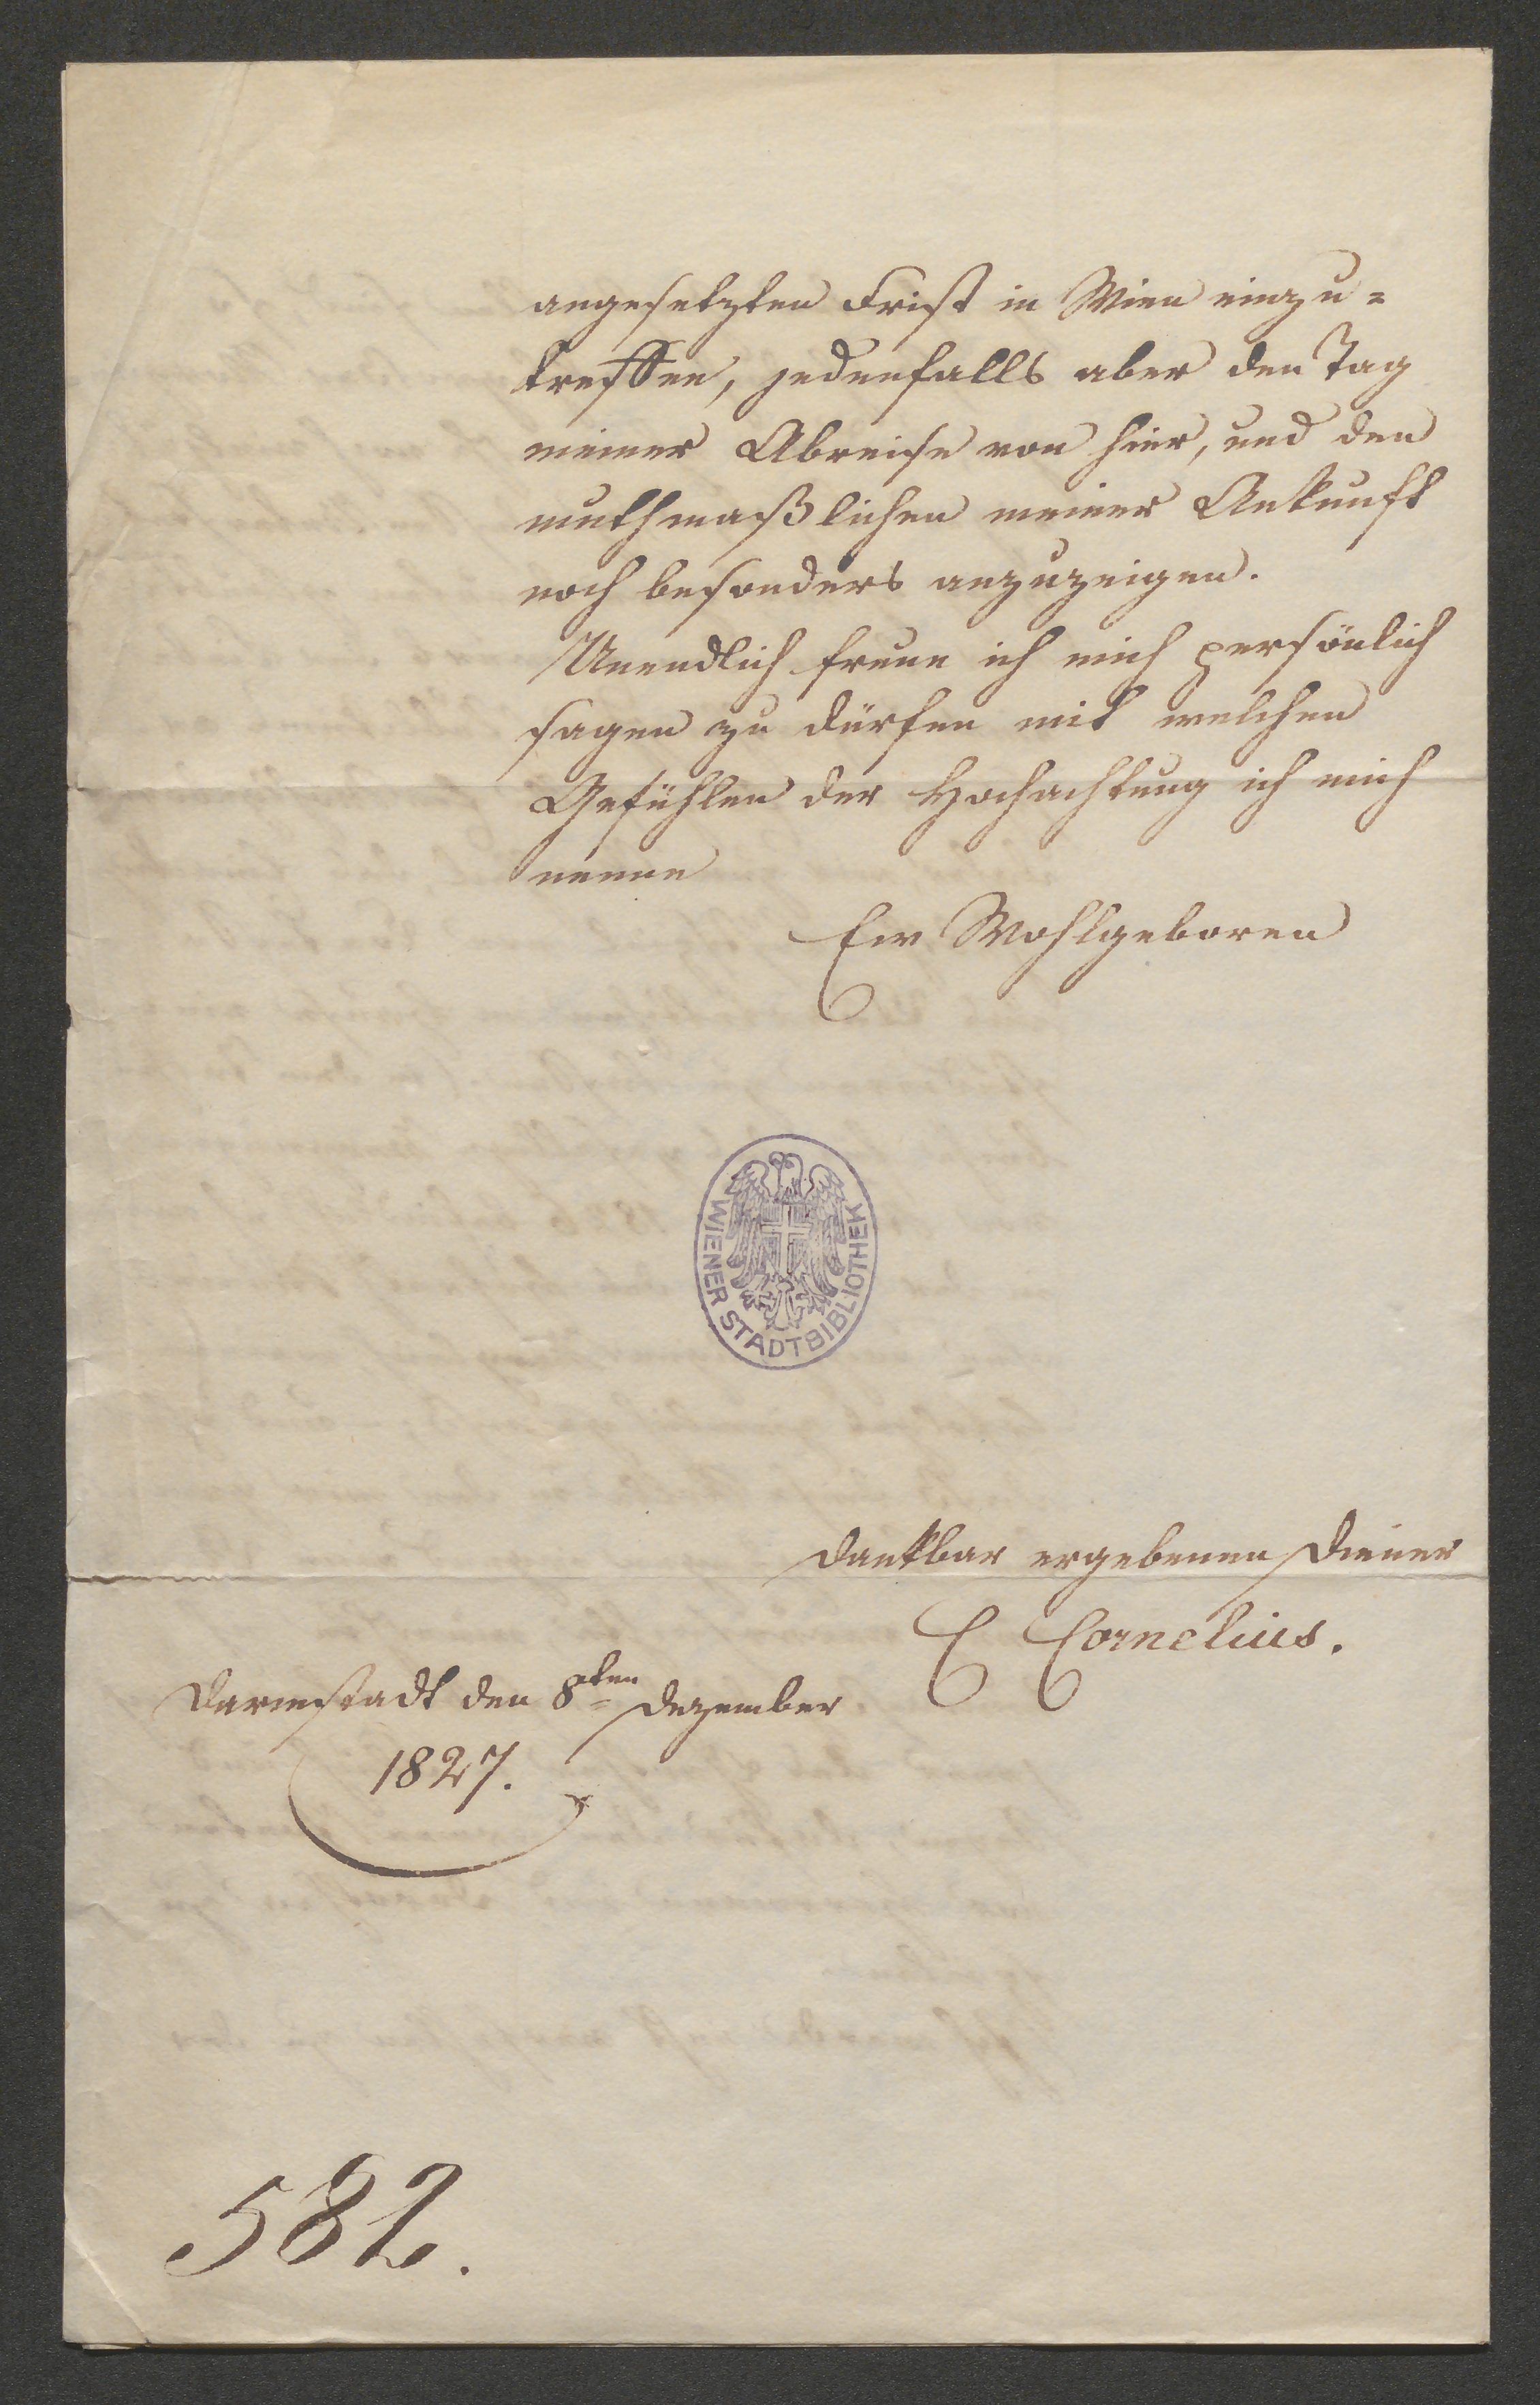 angesetzten Frist in Wien einzu=
treffen, jedenfalls aber den Tag
meiner Abreise von hier, und den
muthmaßlichen meiner Ankunft
noch besonders anzuzeigen.
Unendlich freue ich mich persönlich
sagen zu dürfen mit welchen
Gefühlen der Hochachtung ich mich
nenne
Ew Wohlgeboren
WIENER STADTBIBLIOTHEK
dankbar ergebenen Diener
C Cornelius.
Darmstadt den 8ten Dezember
1827.
582.